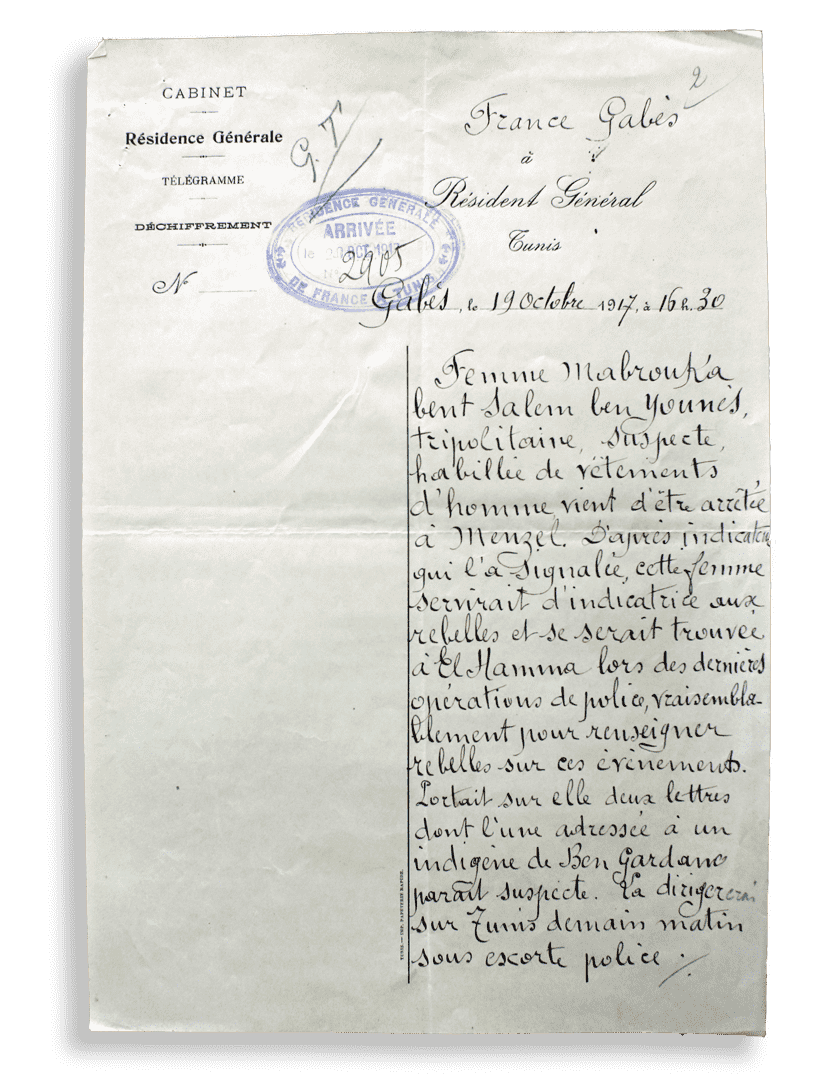 CABINET
Résidence Générale
TÉLÉGRAMME
DÉCHIFFREMENT
N°
G.T
2
France Gabès
à
Résident Général
Tunis
RÉSIDENCE GÉNÉRALE
ARRIVÉE
le OCT 1917
2905
DE FRANCE A TUNIS
Gabès, le 19 Octobre 1917, à 16 h. 30
Femme Mabrouka
bent Salem ben Younès,
tripolitaine, suspecte,
habillée de vêtements
d'homme, vient d'être arrêtée
à Menzel. D'après indicateur
qui l'a signalée, cette femme
servirait d'indicatrice aux
rebelles et se serait trouvée
à El Hamma lors des dernières
opérations de police, vraisembla-
blement pour renseigner
rebelles sur ces évènements.
Portait sur elle deux lettres
dont l'une adressée à un
indigène de Ben Gardane
paraît suspecte. La dirigerai
sur Tunis demain matin
sous escorte police ./
TUNIS — IMP. PAPETERIE RAPIDE.